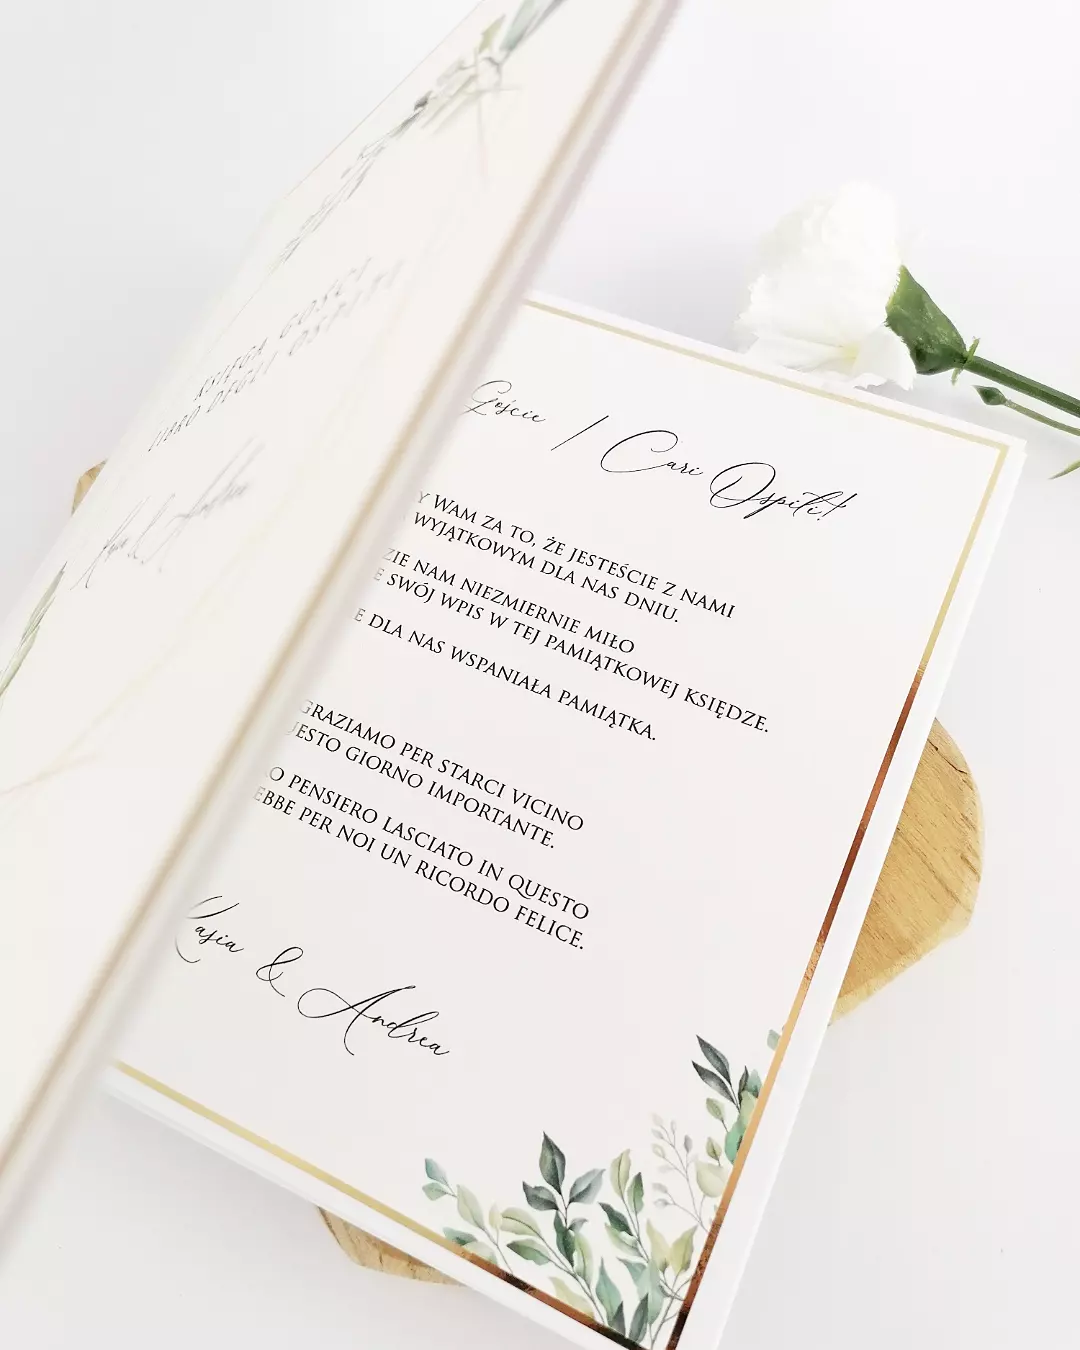 KSIĘGA GOŚCI
LIBRO DEGLI OSPITI
Kasia & Andrea
Goście / Cari Ospiti!
Y WAM ZA TO, ŻE JESTEŚCIE Z NAMI
WYJĄTKOWYM DLA NAS DNIU.
ZIE NAM NIEZMIERNIE MIŁO
E SWÓJ WPIS W TEJ PAMIĄTKOWEJ KSIĘDZE.
E DLA NAS WSPANIAŁA PAMIĄTKA.
GRAZIAMO PER STARCI VICINO
UESTO GIORNO IMPORTANTE.
O PENSIERO LASCIATO IN QUESTO
EBBE PER NOI UN RICORDO FELICE.
Kasia & Andrea